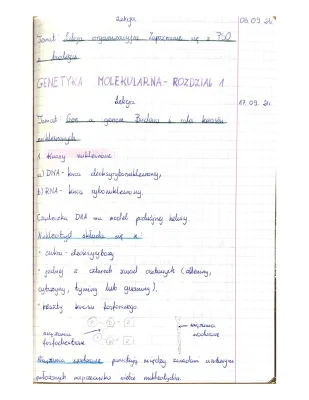 Lekcja 09.09.21r.
Temat: Lekcja organizacyjna. Zapoznanie się z PSO
z biologii
GENETYKA MOLEKULARNA - ROZDZIAŁ 1.
Lekcja 17.09.21r.
Temat: Gen a genom. Budowa i rola kwasów
nukleinowych
1. Kwasy nukleinowe:
a) DNA - kwas deoksyrybonukleinowy,
b) RNA - kwas rybonukleinowy.
Cząsteczka DNA ma model podwójnej helisy.
Nukleotyd składa się z:
• cukru - deoksyrybozy
• jednej z czterech zasad azotowych (adeniny,
cytozyny, tyminy lub guaniny).
• reszty kwasu fosforowego
wiązania fosfodiestrowe
wiązania wodorowe
Wiązania wodorowe powstają między zasadami azotowymi
położonych naprzeciwko siebie nukleotydów.